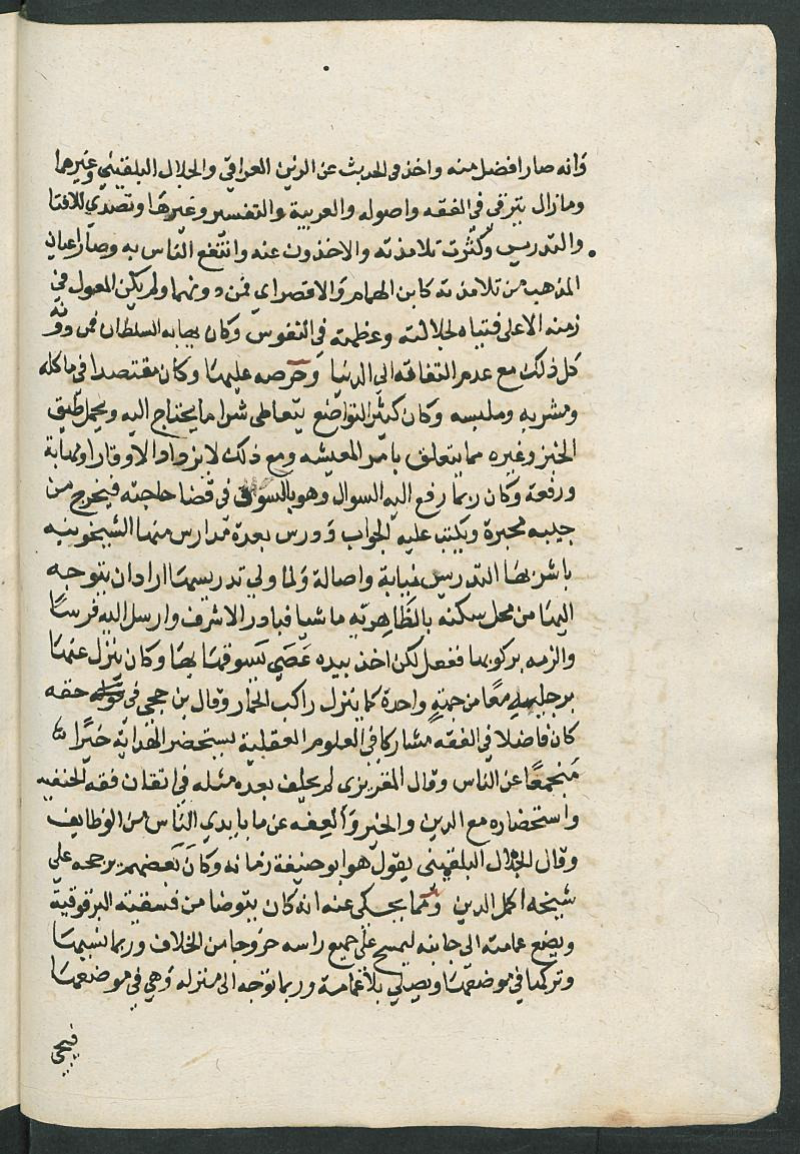 وانه صار افضل منه واخذ فى الحديث عن الزين العراقى والجلال البلقينى وغيرهما
ومازال يترقى فى الفقه واصوله والعربية والتفسير وغيرها وتصدى للافتا
والتدريس وكثرت تلامذته والاخذون عنه وانتفع الناس به وصار اعيان
المذهب من تلامذته كابن الهمام والاقصراى فمن دونهما ولم يكن المعول فى
زمنه الا على فتياه لجلالته وعظمته فى النفوس وكان يهابه السلطان فمن دونه
كل ذلك مع عدم التفاته الى الدنيا وحرصه عليها وكان مقتصدا فى ماكله
ومشربه وملبسه وكان كثير التواضع يتعاطى شرا ما يحتاج اليه ويحمل طبق
الخبز وغيره مما يتعلق بامر المعيشه ومع ذلك لا يزداد الا وقارا ومهابة
ورفعة وكان ربما رفع اليه السوال وهو بالسوق فى قضا حاجته فيخرج من
جيبه محبرة ويكتب عليه الجواب ودرس بعدة مدارس منها الشيخونيه
باشر بها التدريس نيابة واصالة ولما ولي تدريسها اراد ان يتوجه
اليها من محل سكنه بالظاهرية ماشيا فبادر الاشرف وارسل اليه فرسا
والزمه بركوبها ففعل لكن اخذ بيده عصى يسوقها بها وكان ينزل عنها
برجليه معا من جهة واحدة كما ينزل راكب الحمار وقال بن حجى فى حقه
كان فاضلا فى الفقه مشاركا فى العلوم العقلية يستحضر الهداية خيرا
منجمعا عن الناس وقال المقريزى لم يخلف بعده مثله فى اتقان فقه الحنفيه
واستحضاره مع الدين والخير والعفه عن ما بايدي الناس من الوظايف
وقال الجلال البلقينى يقول هو ابو حنيفة زمانه وكان بعضهم يرجحه على
شيخه اكمل الدين ومما يحكى عنه انه كان يتوضا من فسقيته البرقوقية
ويضع عمامته الى جانبه ليمسح على جميع راسه خروجا من الخلاف وربما نسيها
وتركها فى موضعها ويصلي بلا عمامة وربما توجه الى منزله وهي فى موضعها
فيجى